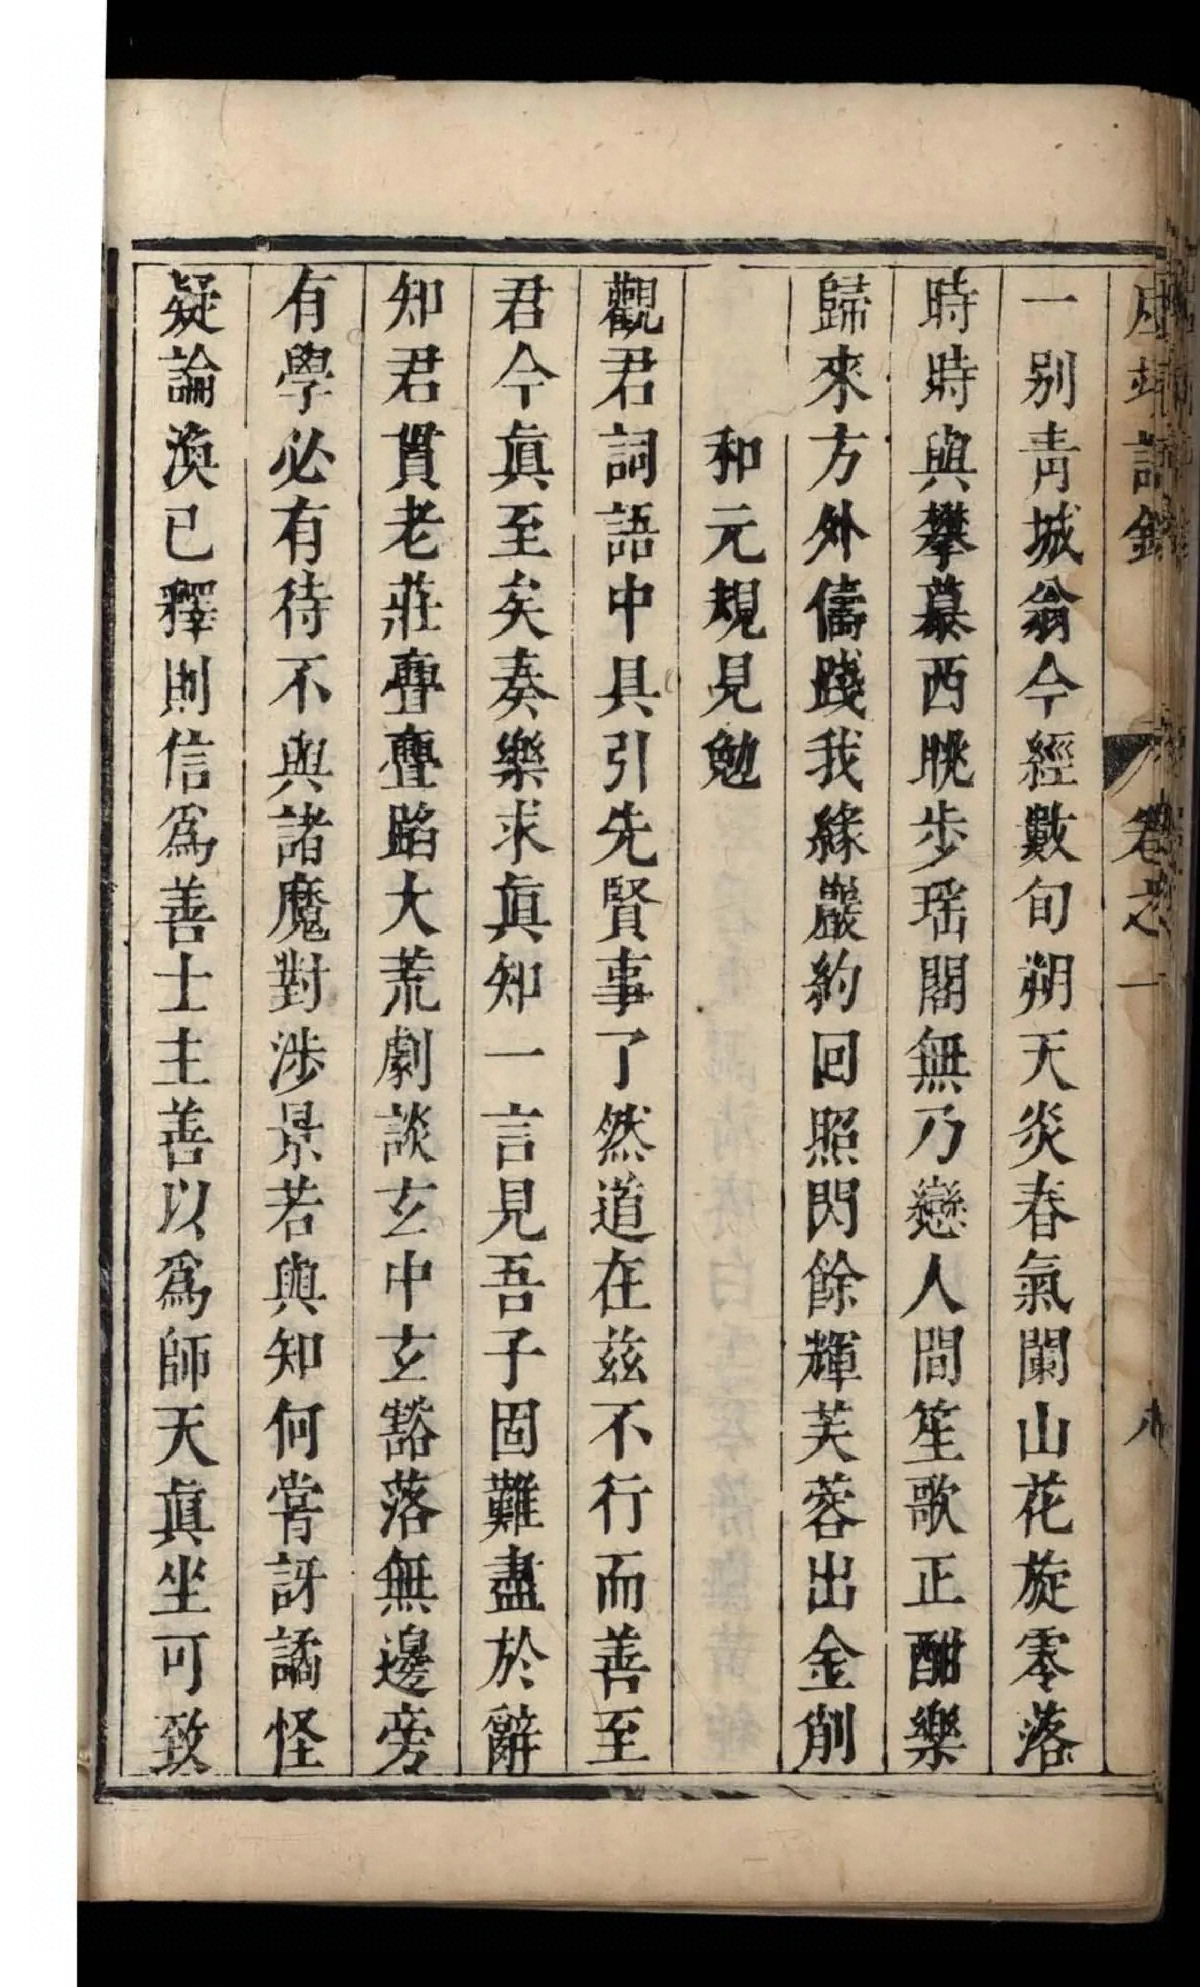 卷之一
一别青城翁今經數旬朔天炎春氣闌山花旋零落
時時與攀慕西眺步瑶閣無乃戀人間笙歌正酣樂
歸來方外儔踐我緣巖約回照閃餘輝芙蓉出金削
和元規見勉
觀君詞語中具引先賢事了然道在茲不行而善至
君今眞至矣奏樂求眞知一言見吾子固難盡於辭
知君貫老莊亹亹蹈大荒劇談玄中玄豁落無邊旁
有學必有待不與諸魔對涉景若與知何甞訝譎怪
疑論渙已釋則信爲善士主善以爲師天眞坐可致